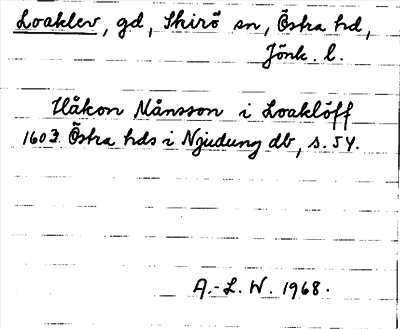 Loaklev, gd, Skirö sn, Östra hd,
Jönk. l.
Håkon Månsson i Loaklöff
1603. Östra hds i Njudung db, s. 54.
A.-L. W. 1968.